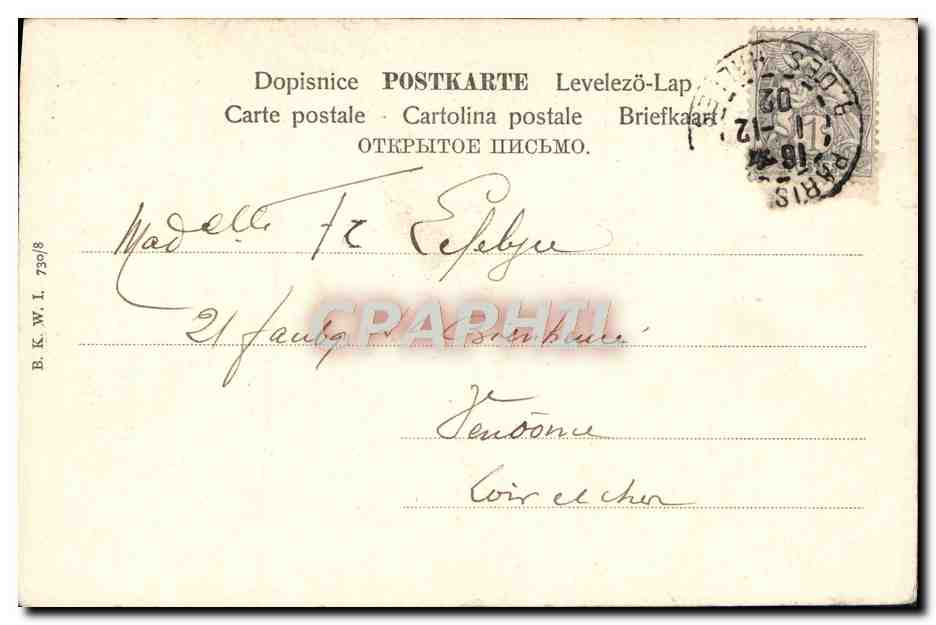 Dopisnice POSTKARTE Levelezö-Lap
Carte postale - Cartolina postale Briefkaart
ОТКРЫТОЕ ПИСЬМО.
PARIS
16
12
02
B. K. W. I. 730/8
Madelle Lefebvre
21 faubg
Vendôme
Loir et cher
CPAPHIL